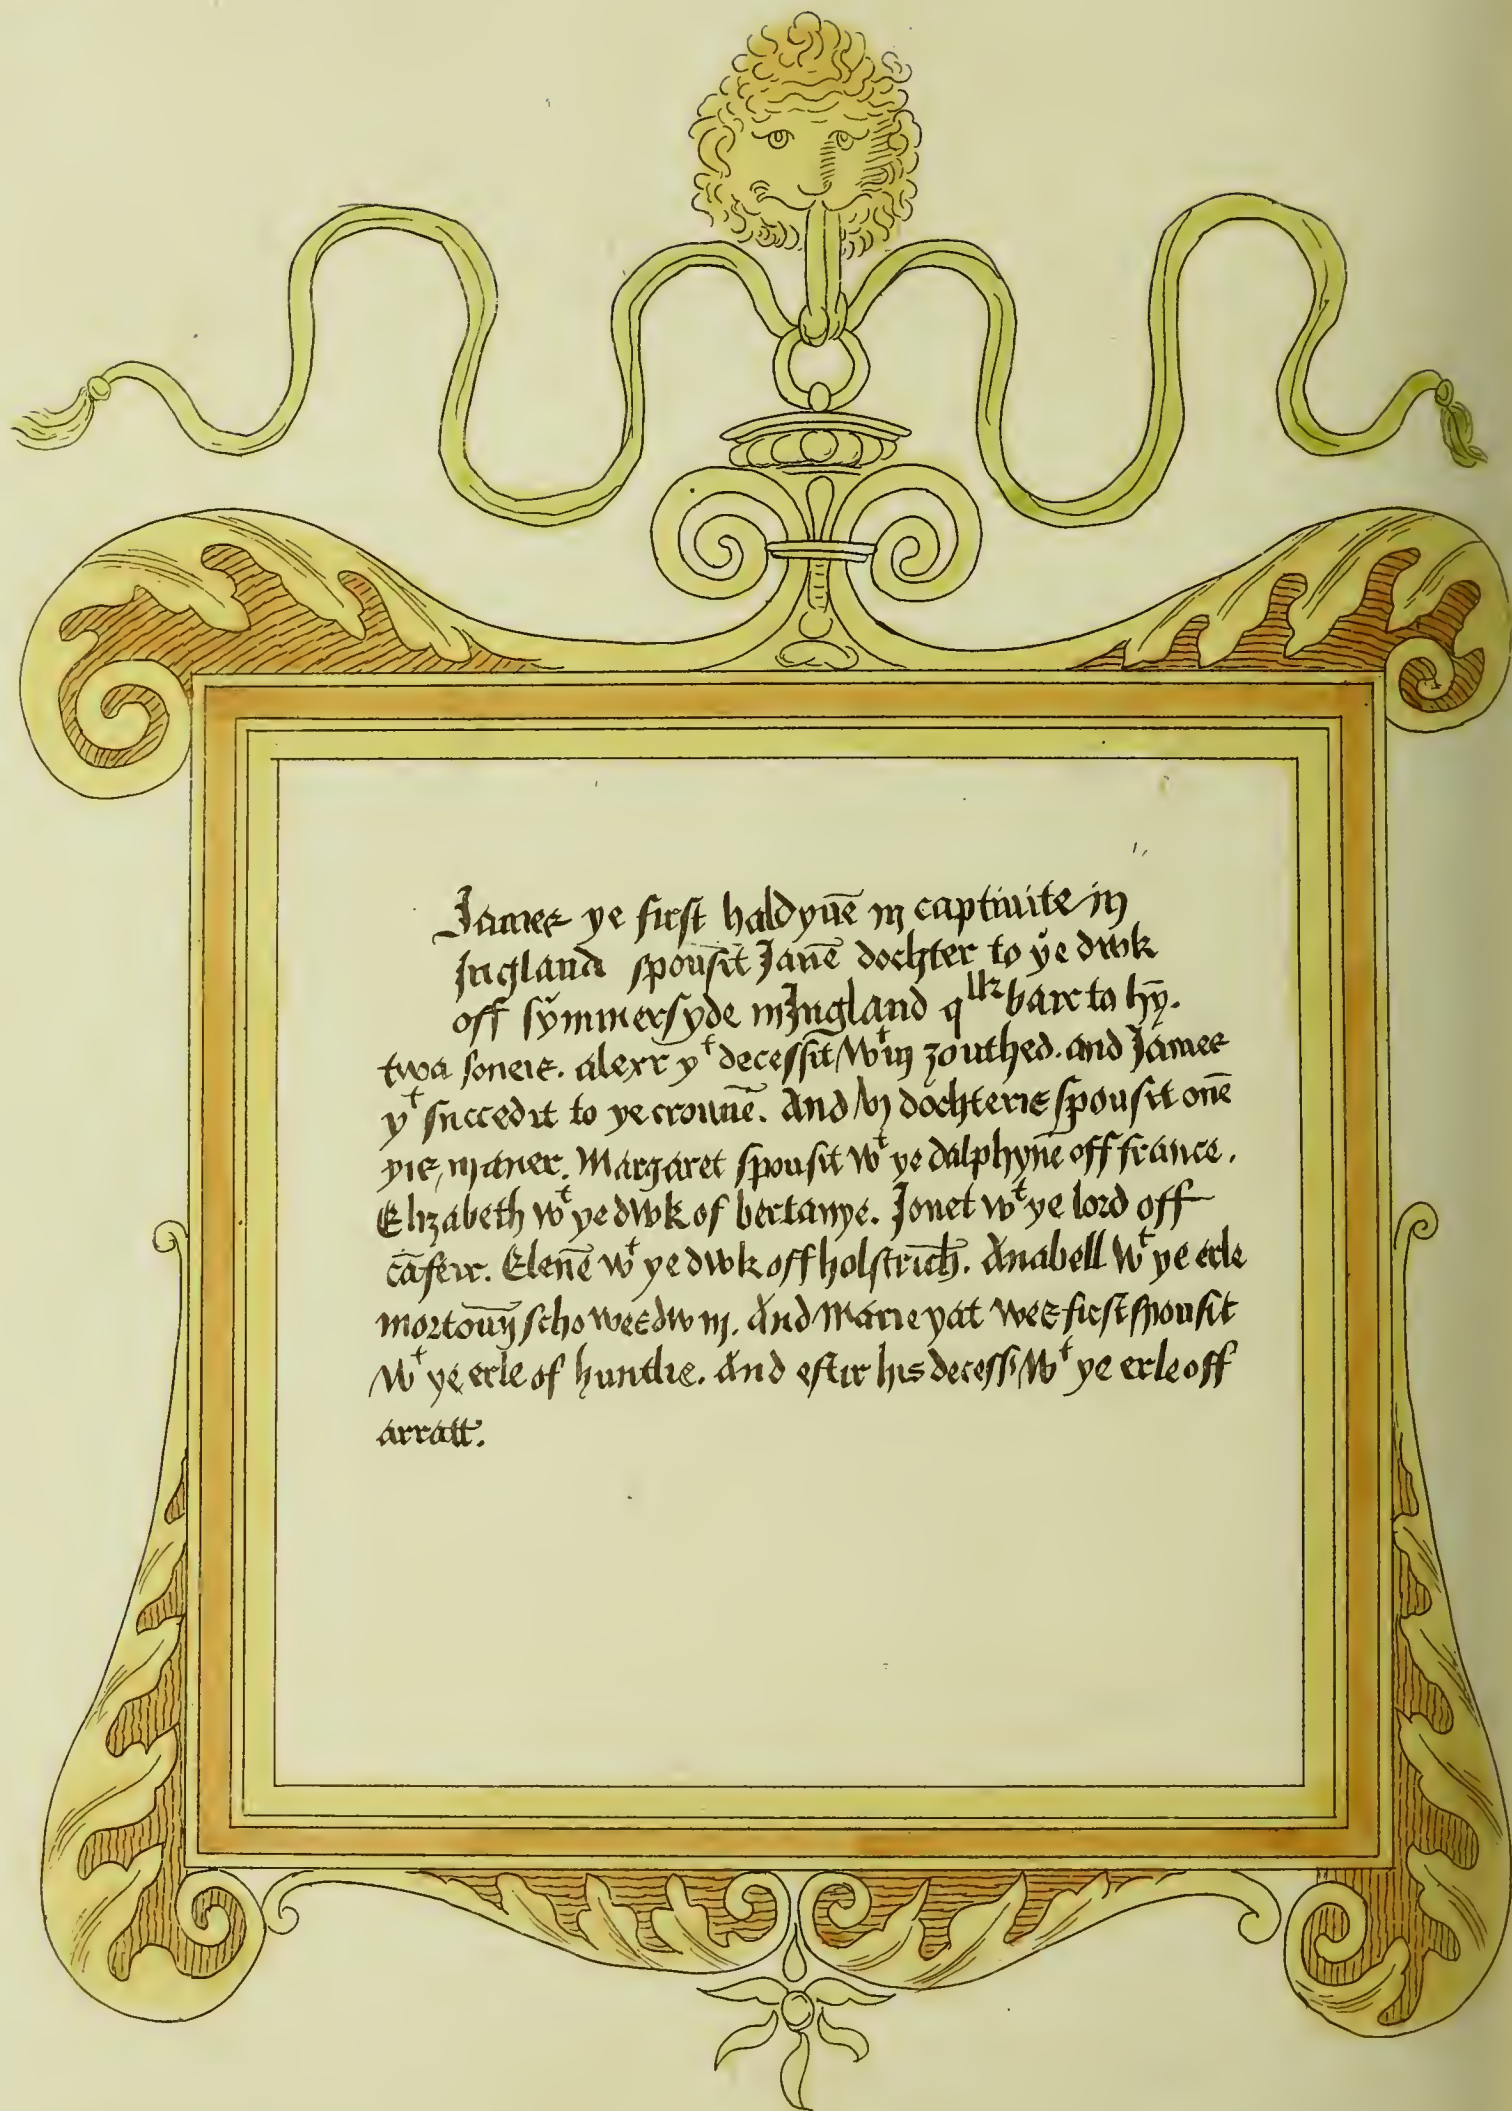 James ye first haldyne in captiuite in
Ingland spousit Jane dochter to ye dwk
off symmersyde in Ingland qlk bare to hȳ.
twa soneis. alexr yt decessit wtin zouthed. and James
yt succedit to ye croune. And vj dochteris spousit one
yis maner. Margaret spousit wt ye dalphyne off france.
Elizabeth wt ye dwk of bertanye. Jonet wt ye lord off
cāfeir. Elene wt ye dwk off holstrich. Anabell wt ye erle
mortoun scho wes dwm. And Marie yat wes first spousit
wt ye erle of huntlie. And eftir his decess wt ye erle off
arratt.